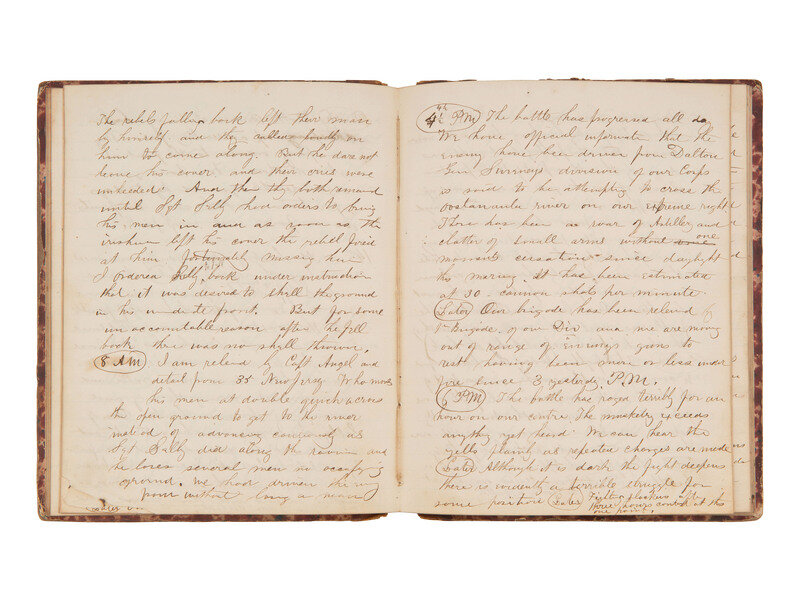 The rebels fallen back left their man
by himself and they called loudly on
him to come along. But he dare not
leave his cover and their cries were
unheeded. And then they both remained
until Sgt Lally had orders to bring
his men in and as soon as the
irishman left his cover the rebel fired
at him fortunately missing him
I ordered Lally back under instruction
that it was desired to shell the ground
in his immediate front. But for some
unaccountable reason after he fell
back there was no shell thrown.
8 AM I am relieved by Capt Angel and
detail from 35 New Jersey Who moves
his men at double quick across
the open ground to get to the river
instead of advancing cautiously as
Sgt Lally did along the ravine and
he loses several men in occupying
ground. We had driven the enemy
from without losing a man
4 PM The battle has progressed all day
We have official information that the
enemy have been driven from Dalton
Gen Sweeneys division of our Corps
is said to be attempting to cross the
oostanaula river on our extreme right
There has been a roar of Artillery and
clatter of small arms without one
moments cessation since daylight
this morning. It has been estimated
at 30 cannon shots per minute.
Later Our brigade has been relieved by
1st Brigade of our Div and we are moving
out of range of enemys guns to
rest having been more or less under
fire since 3 yesterday P.M.
6 PM The battle has raged terribly for an
hour on our centre. The musketry exceeds
anything yet heard. We can hear the
yells plainly as repeated charges are made
Later Although it is dark the fight deepens
there is evidently a terrible struggle for
some position Later Fighting slackens after
three hours contest at this
one point.